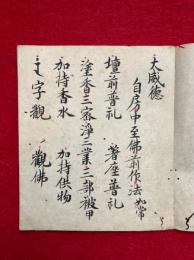 大威徳
自房中至佛前作法如常
壇前普礼　著座普礼
塗香三密淨三業三部被甲
加持香水　加持供物
字觀　觀佛